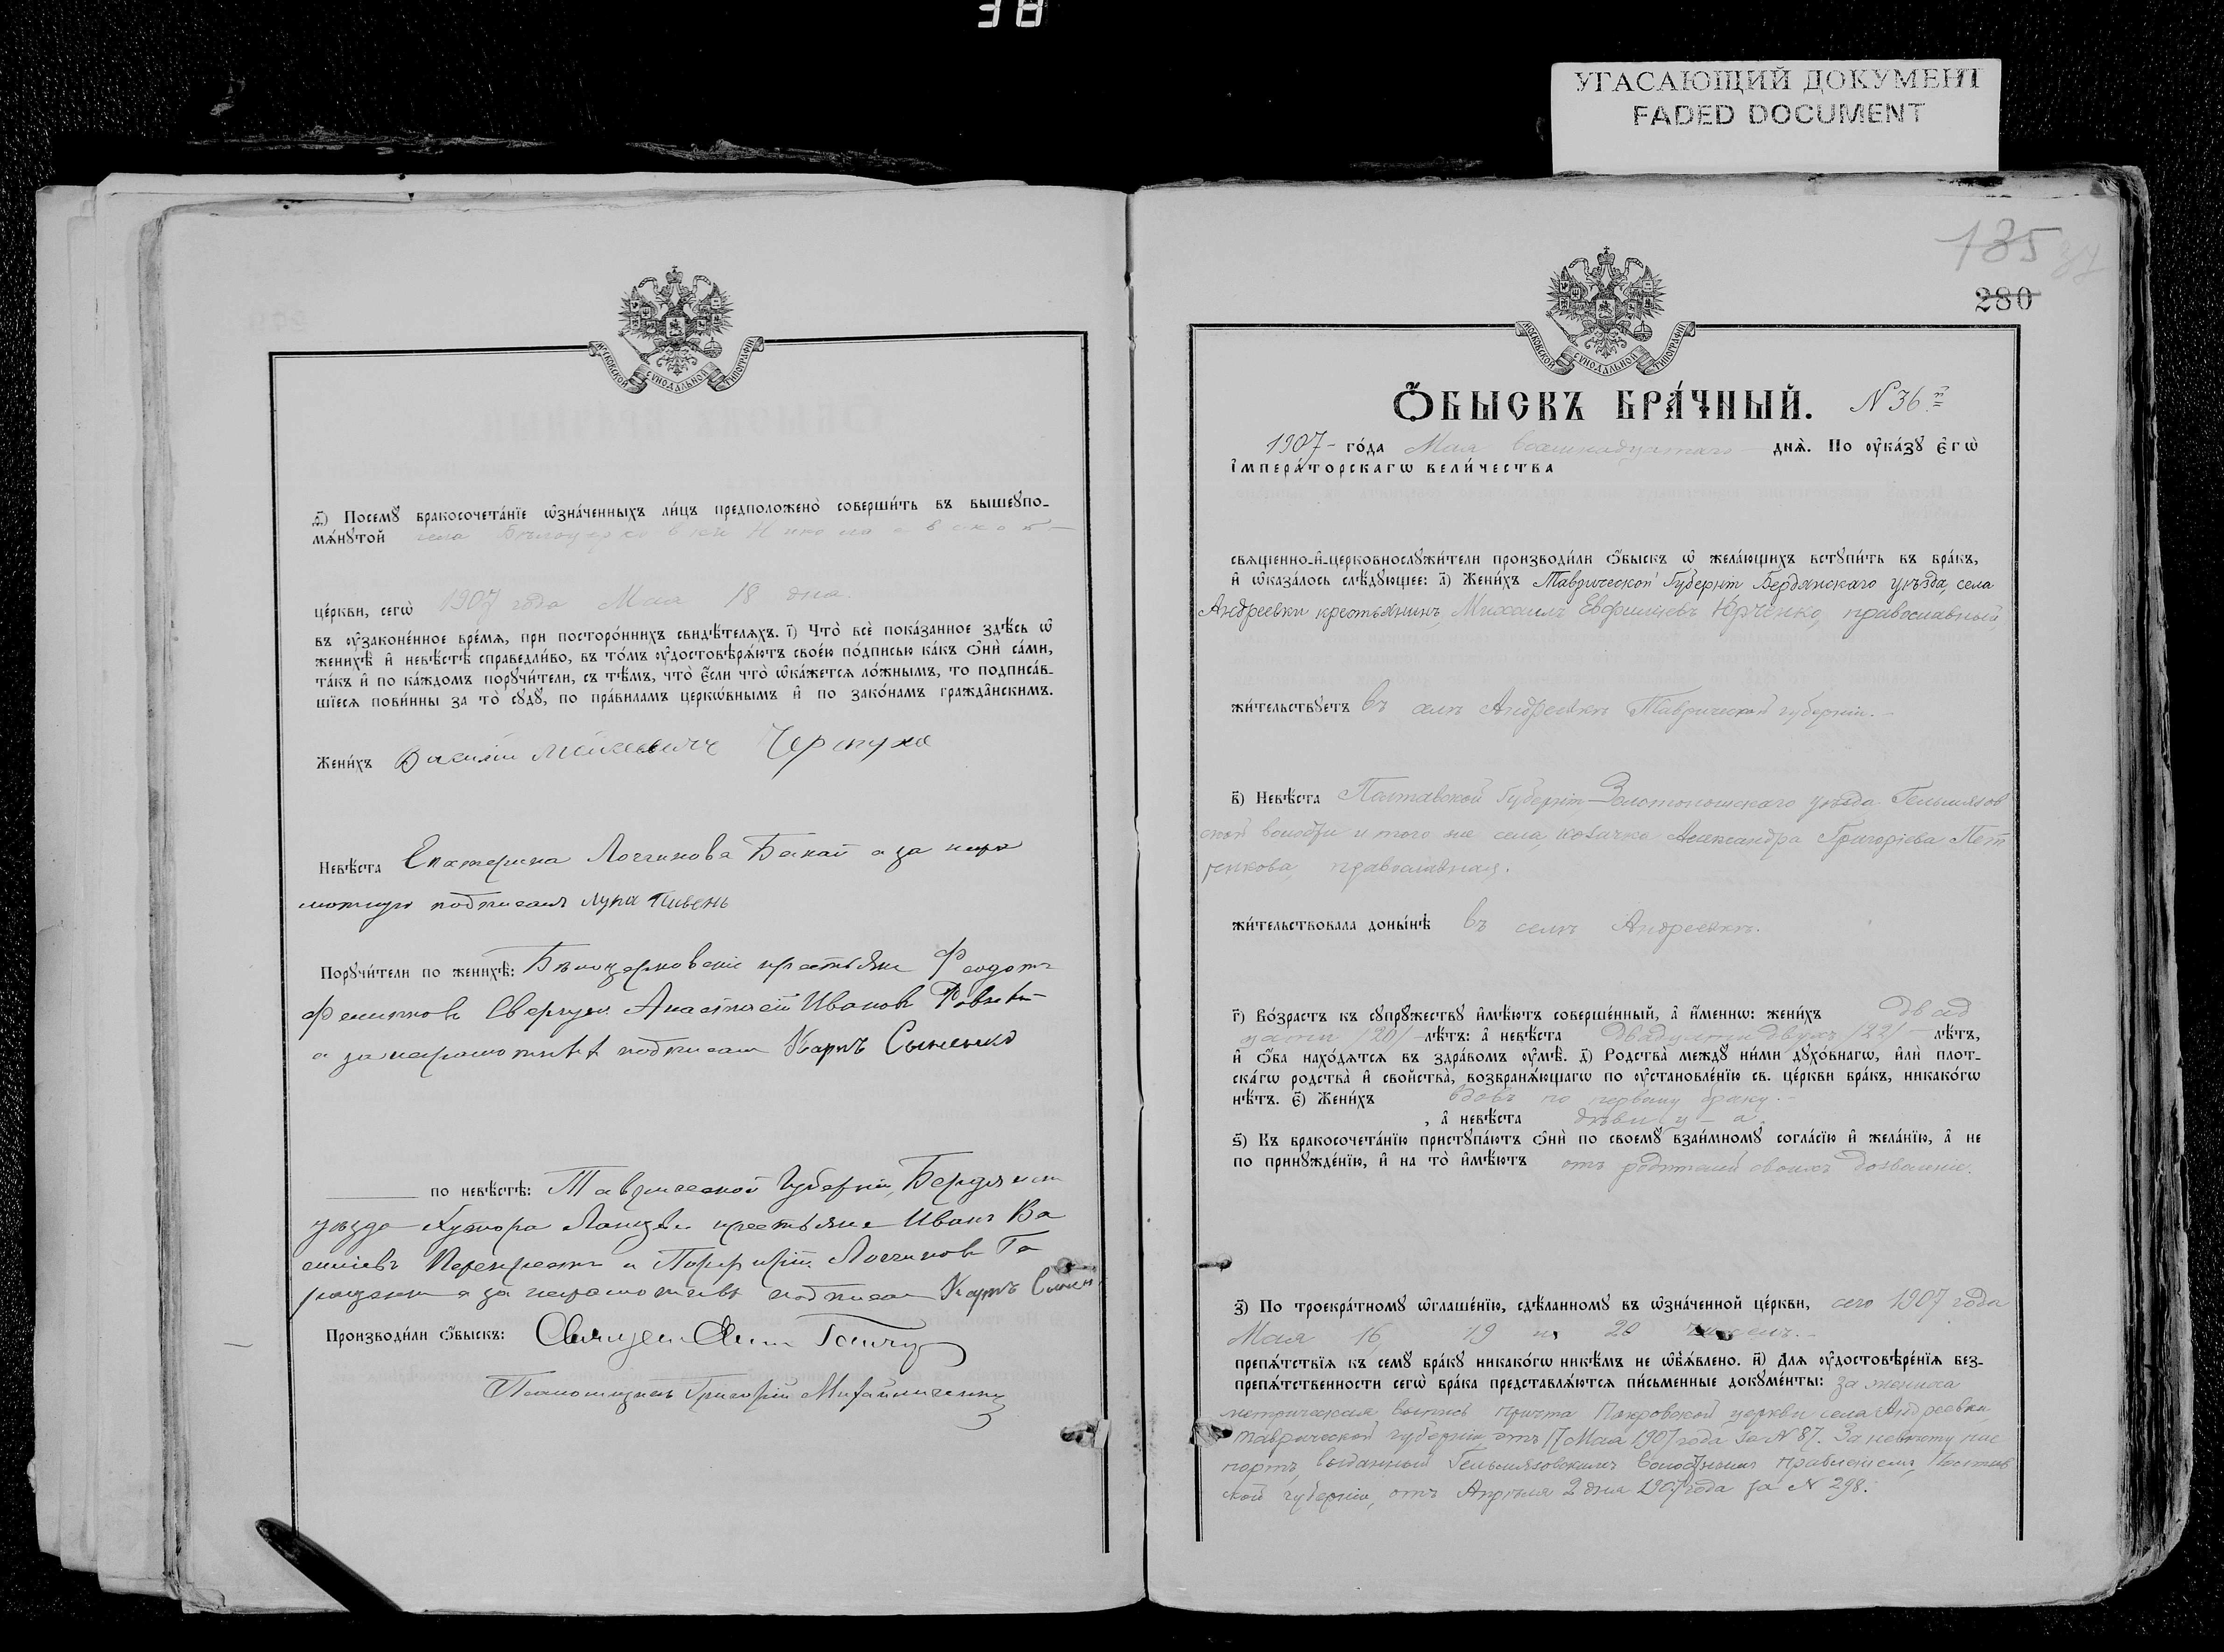 38
УГАСАЮЩИЙ ДОКУМЕНТ
FADED DOCUMENT
МОСКОВСКОЙ СУНОДАЛЬНОЙ ТИПОГРАФІИ
д҃і) Посемꙋ̀ бракосочета́нїе ѡ҆зна́ченныхъ ли́цъ предположено̀ соверши́ть въ вышеꙋпо-
мѧ́нꙋтой села Бѣлоцерковки Николаевской
це́ркви, сегѡ̀ 1907 года Мая 18 дня.
въ ᲂу҆законе́нное вре́мѧ, при посторо́ннихъ свидѣ́телѧхъ. і҃) Что̀ всѐ пока́занное здѣ́сь ѡ҆
женихѣ̀ и҆ невѣ́стѣ справедли́во, въ то́мъ ᲂу҆достовѣрѧ́ютъ свое́ю по́дписью ка́къ ѻ҆нѝ са́ми,
та́къ и҆ по ка́ждомъ порꙋчи́тели, съ тѣ́мъ, что̀ є҆́сли что̀ ѡ҆ка́жетсѧ ло́жнымъ, то подписа́в-
шїесѧ пови́нны за то̀ сꙋдꙋ̀, по пра́виламъ церкѡ́внымъ и҆ по зако́намъ гражда̑нскимъ.
Жени́хъ Василій Черпуха
Невѣ́ста Екатерина Логгинова Бакай а за негра
мотную подписалъ Лука Пивень
Порꙋчи́тели по женихѣ̀: Бѣлоцерковскіе крестьяне Феодотъ
Филиповъ Иванов
а за неграмотныхъ подписалъ Карпъ Сыненко
по невѣ́стѣ: Таврической Губерніи, Бердянск
уѣзда Хутора крестьяне Иванъ Ва
силіевъ Перехрестъ и Порфирій Логгиновъ Га
ращенко а за неграмотныхъ подписалъ Карпъ
Производи́ли ѻ҆́быскъ: Священ
Псаломщикъ Григорій Михайличенко
135
280
МОСКОВСКОЙ СУНОДАЛЬНОЙ ТИПОГРАФІИ
Ѻ҆́БЫСКЪ БРА́ЧНЫЙ. N 36й
1907 го́да Мая восемнадцатаго днѧ̀. По ᲂу҆ка́зꙋ Є҆гѡ̀
І҆мпера́торскагѡ вели́чества
свѧще́нно-и҆-церковнослꙋжи́тели производи́ли ѻ҆́быскъ ѡ҆ жела́ющихъ встꙋпи́ть въ бра́къ,
и҆ ѡ҆каза́лось слѣ́дꙋющее: а҃) Жени́хъ Таврической Губерніи Бердянскаго уѣзда, села
Андреевки крестьянинъ Михаилъ Евфиміевъ Юрченко, православный
жи́тельствꙋетъ въ селѣ Андреевкѣ Таврической губерніи.
в҃) Невѣ́ста Полтавской Губерніи Золотоношскаго уѣзда Гельмязов
ской волости и того же села, козачка Александра Григоріева Пет
ренкова, православная.
жи́тельствовала доны́нѣ въ селѣ Андреевкѣ.
г҃) Во́зрастъ къ сꙋпрꙋ́жествꙋ и҆мѣ́ютъ соверше́нный, а҆ и҆́меннѡ: жени́хъ двад
цати /20/ лѣ́тъ: а҆ невѣ́ста двадцати двухъ /22/ лѣ́тъ,
и҆ ѻ҆́ба нахо́дѧтсѧ въ здра́вомъ ᲂу҆мѣ̀. д҃) Родства̀ междꙋ̀ ни́ми дꙋхо́внагѡ, и҆лѝ плот-
ска́гѡ родства̀ и҆ сво́йства̀, возбранѧ́ющагѡ по ᲂу҆становле́нїю св. це́ркви бра́къ, никако́гѡ
нѣ́тъ. є҃) Жени́хъ вдовъ по первому браку.
, а҆ невѣ́ста дѣвица
ѕ҃) Къ бракосочета́нїю пристꙋпа́ютъ ѻ҆нѝ по своемꙋ̀ взаи́мномꙋ согла́сїю и҆ жела́нїю, а҆ не
по принꙋжде́нїю, и҆ на то̀ и҆мѣ́ютъ отъ родителей своихъ дозволеніе.
з҃) По троекра́тномꙋ ѡ҆глаше́нїю, сдѣ́ланномꙋ въ ѡ҆зна́ченной це́ркви, сего 1907 года
Мая 16, 19 и 20 чиселъ.
препѧ́тствїѧ къ семꙋ̀ бра́кꙋ никако́гѡ никѣ́мъ не ѡ҆б̾ѧ́влено. и҃) Для ᲂу҆достовѣре́нїѧ без-
препѧ́тственности сегѡ̀ бра́ка представлѧ́ютсѧ пи́сьменные докꙋме́нты: за жениха
метрическая выпись причта Покровской церкви села Андреевки,
Таврической губерніи отъ 17 Мая 1907 года за N 87. За невѣсту пас
портъ, выданный Гельмязовскимъ волостнымъ правленіемъ, Полтав
ской губерніи, отъ Апрѣля 2 дня 1907 года за N 298.